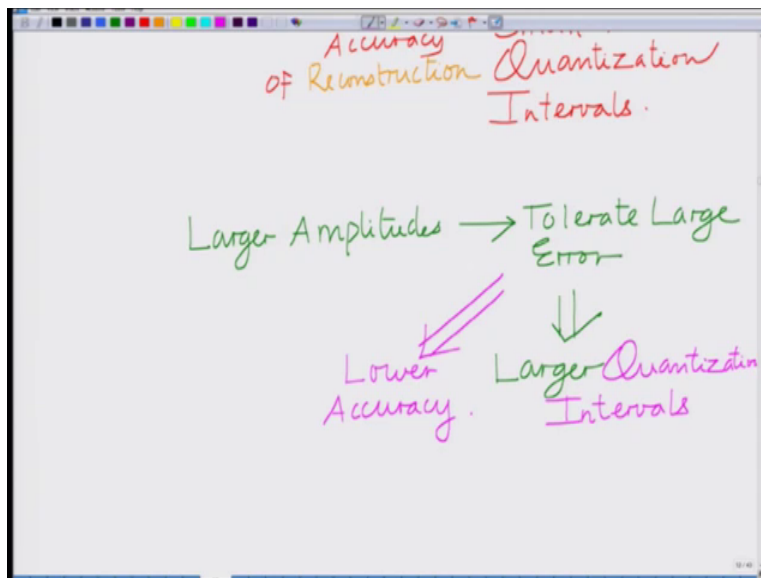 Accuracy
of Reconstruction Quantization
Intervals.
Larger Amplitudes → Tolerate Large
Error
Lower Larger Quantization
Accuracy. Intervals